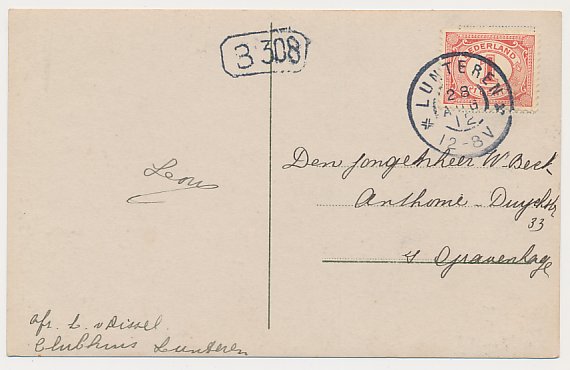 B 308
NEDERLAND
1
LUNTEREN
28
AUG
12
12-8V
Den Jongenheer W. Beck
Anthonie-Duyckstr
33
s Gravenhage
Leon
afz. L. v Dissel
Clubhuis Lunteren